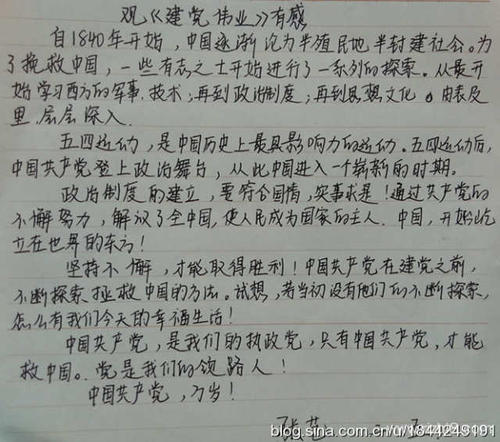 观《建党伟业》有感
自1840年开始,中国逐渐沦为半殖民地半封建社会。为
了挽救中国,一些有志之士开始进行了一系列的探索。从最开
始学习西方的军事、技术,再到政治制度,再到思想文化。由表及
里,层层深入.
五四运动,是中国历史上最具影响力的运动.五四运动后,
中国共产党登上政治舞台,从此中国进入一个崭新的时期。
政治制度的建立,要符合国情,实事求是!通过共产党的
不懈努力,解放了全中国,使人民成为国家的主人.中国,开始屹
立在世界的东方!
坚持不懈,才能取得胜利!中国共产党在建党之前,
不断探索拯救中国的方法。试想,若当初没有他们的不断探索,
怎么有我们今天的幸福生活!
中国共产党,是我们的执政党,只有中国共产党,才能
救中国。党是我们的领路人!
中国共产党,万岁!
blog.sina.com.cn/u/1844249191